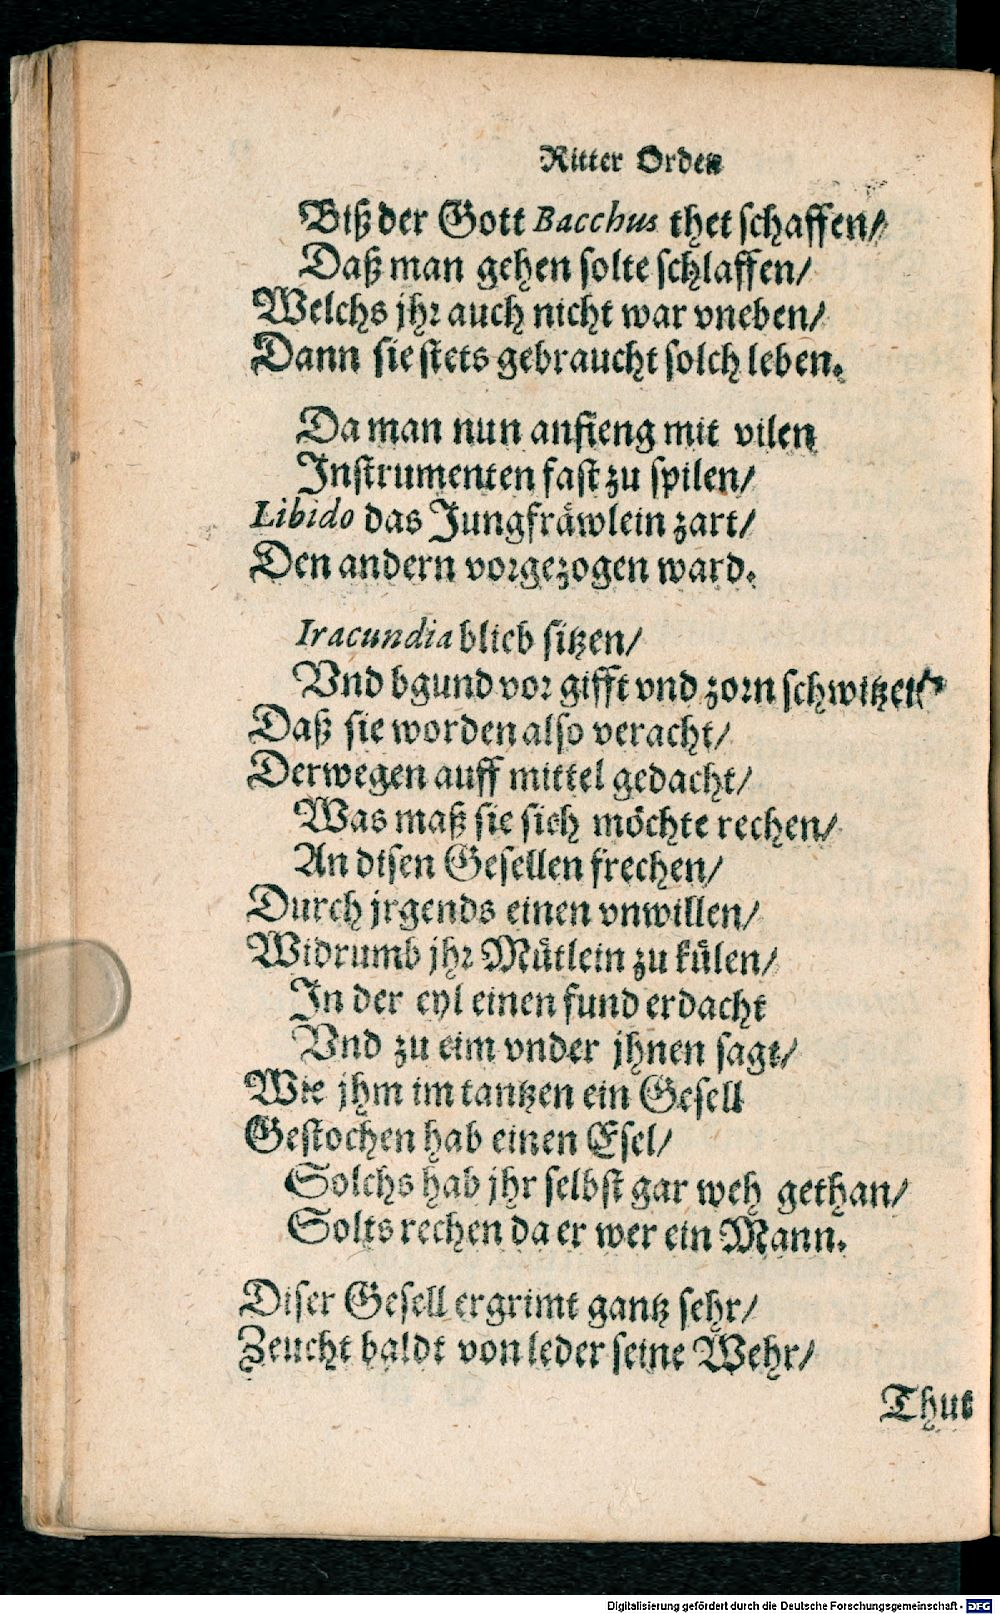 Ritter Orden
Biß der Gott Bacchus thet schaffen/
Daß man gehen solte schlaffen/
Welchs jhr auch nicht war vneben/
Dann sie stets gebraucht solch leben.
Da man nun anfieng mit vilen
Instrumenten fast zu spilen/
Libido das Jungfräwlein zart/
Den andern vorgezogen ward.
Iracundia blieb sitzen/
Vnd bgund vor gifft vnd zorn schwitzen/
Daß sie worden also veracht/
Derwegen auff mittel gedacht/
Was maß sie sich möchte rechen/
An disen Gesellen frechen/
Durch jrgends einen vnwillen/
Widrumb jhr Mütlein zu külen/
In der eyl einen fund erdacht
Vnd zu eim vnder jhnen sagt/
Wie jhm im tantzen ein Gesell
Gestochen hab einen Esel/
Solchs hab jhr selbst gar weh gethan/
Solts rechen da er wer ein Mann.
Diser Gesell ergrimt gantz sehr/
Zeucht baldt von leder seine Wehr/
Thut
Digitalisierung gefördert durch die Deutsche Forschungsgemeinschaft - DFG